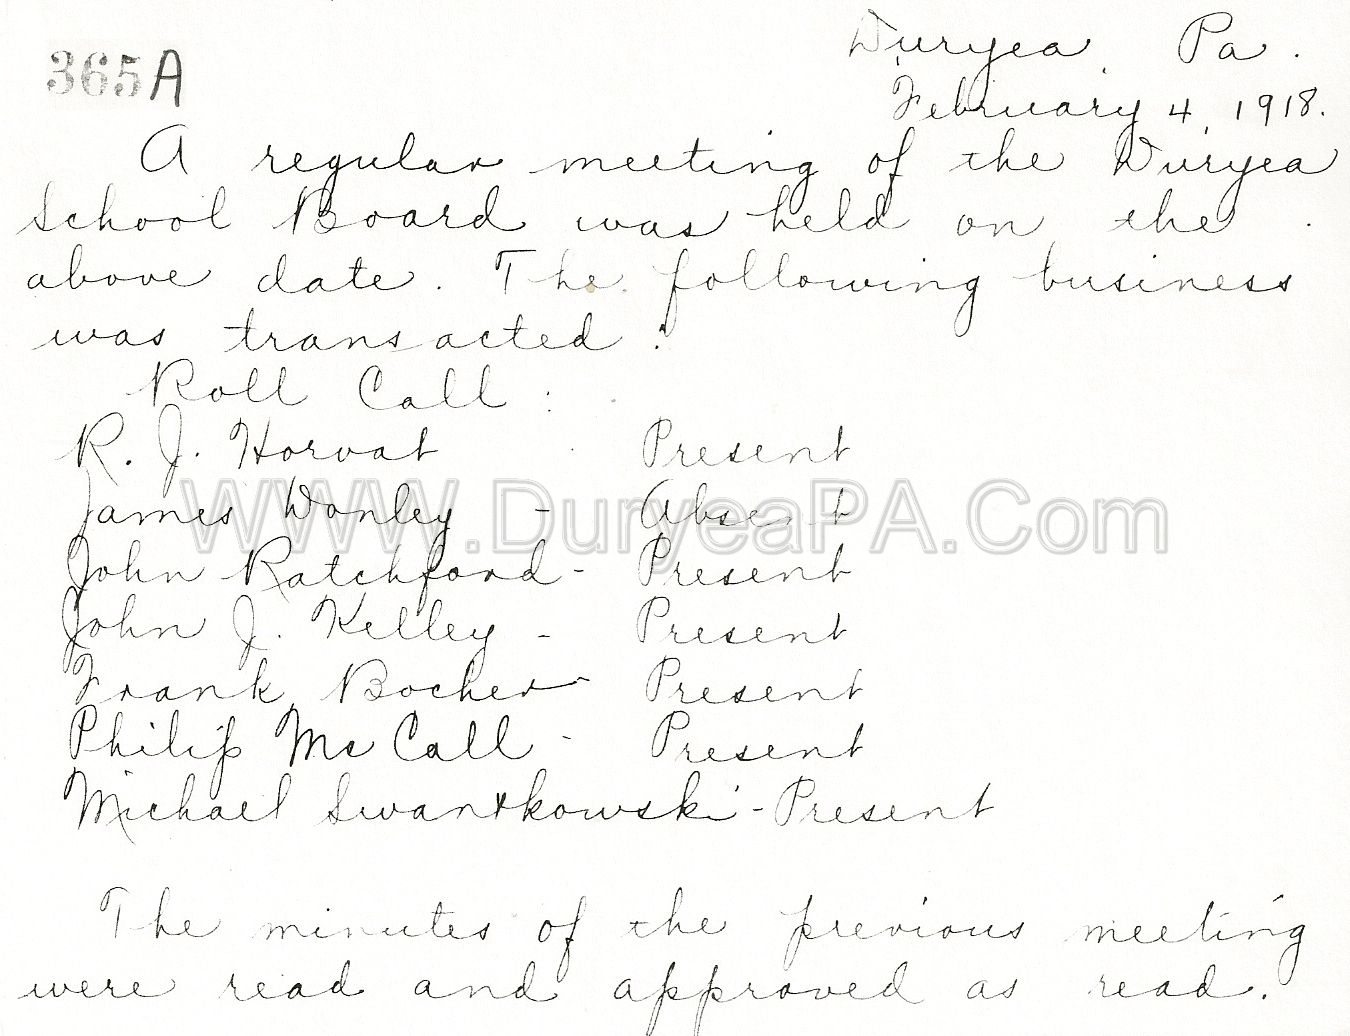 365A
Duryea, Pa.
February 4, 1918.
A regular meeting of the Duryea
School Board was held on the
above date. The following business
was transacted:
Roll Call:
R. J. Horvat Present
James Donley - Absent
WWW.DuryeaPA.Com
John Ratchford - Present
John J. Kelley - Present
Frank Bocher - Present
Philip McCall - Present
Michael Swantkowski - Present
The minutes of the previous meeting
were read and approved as read.